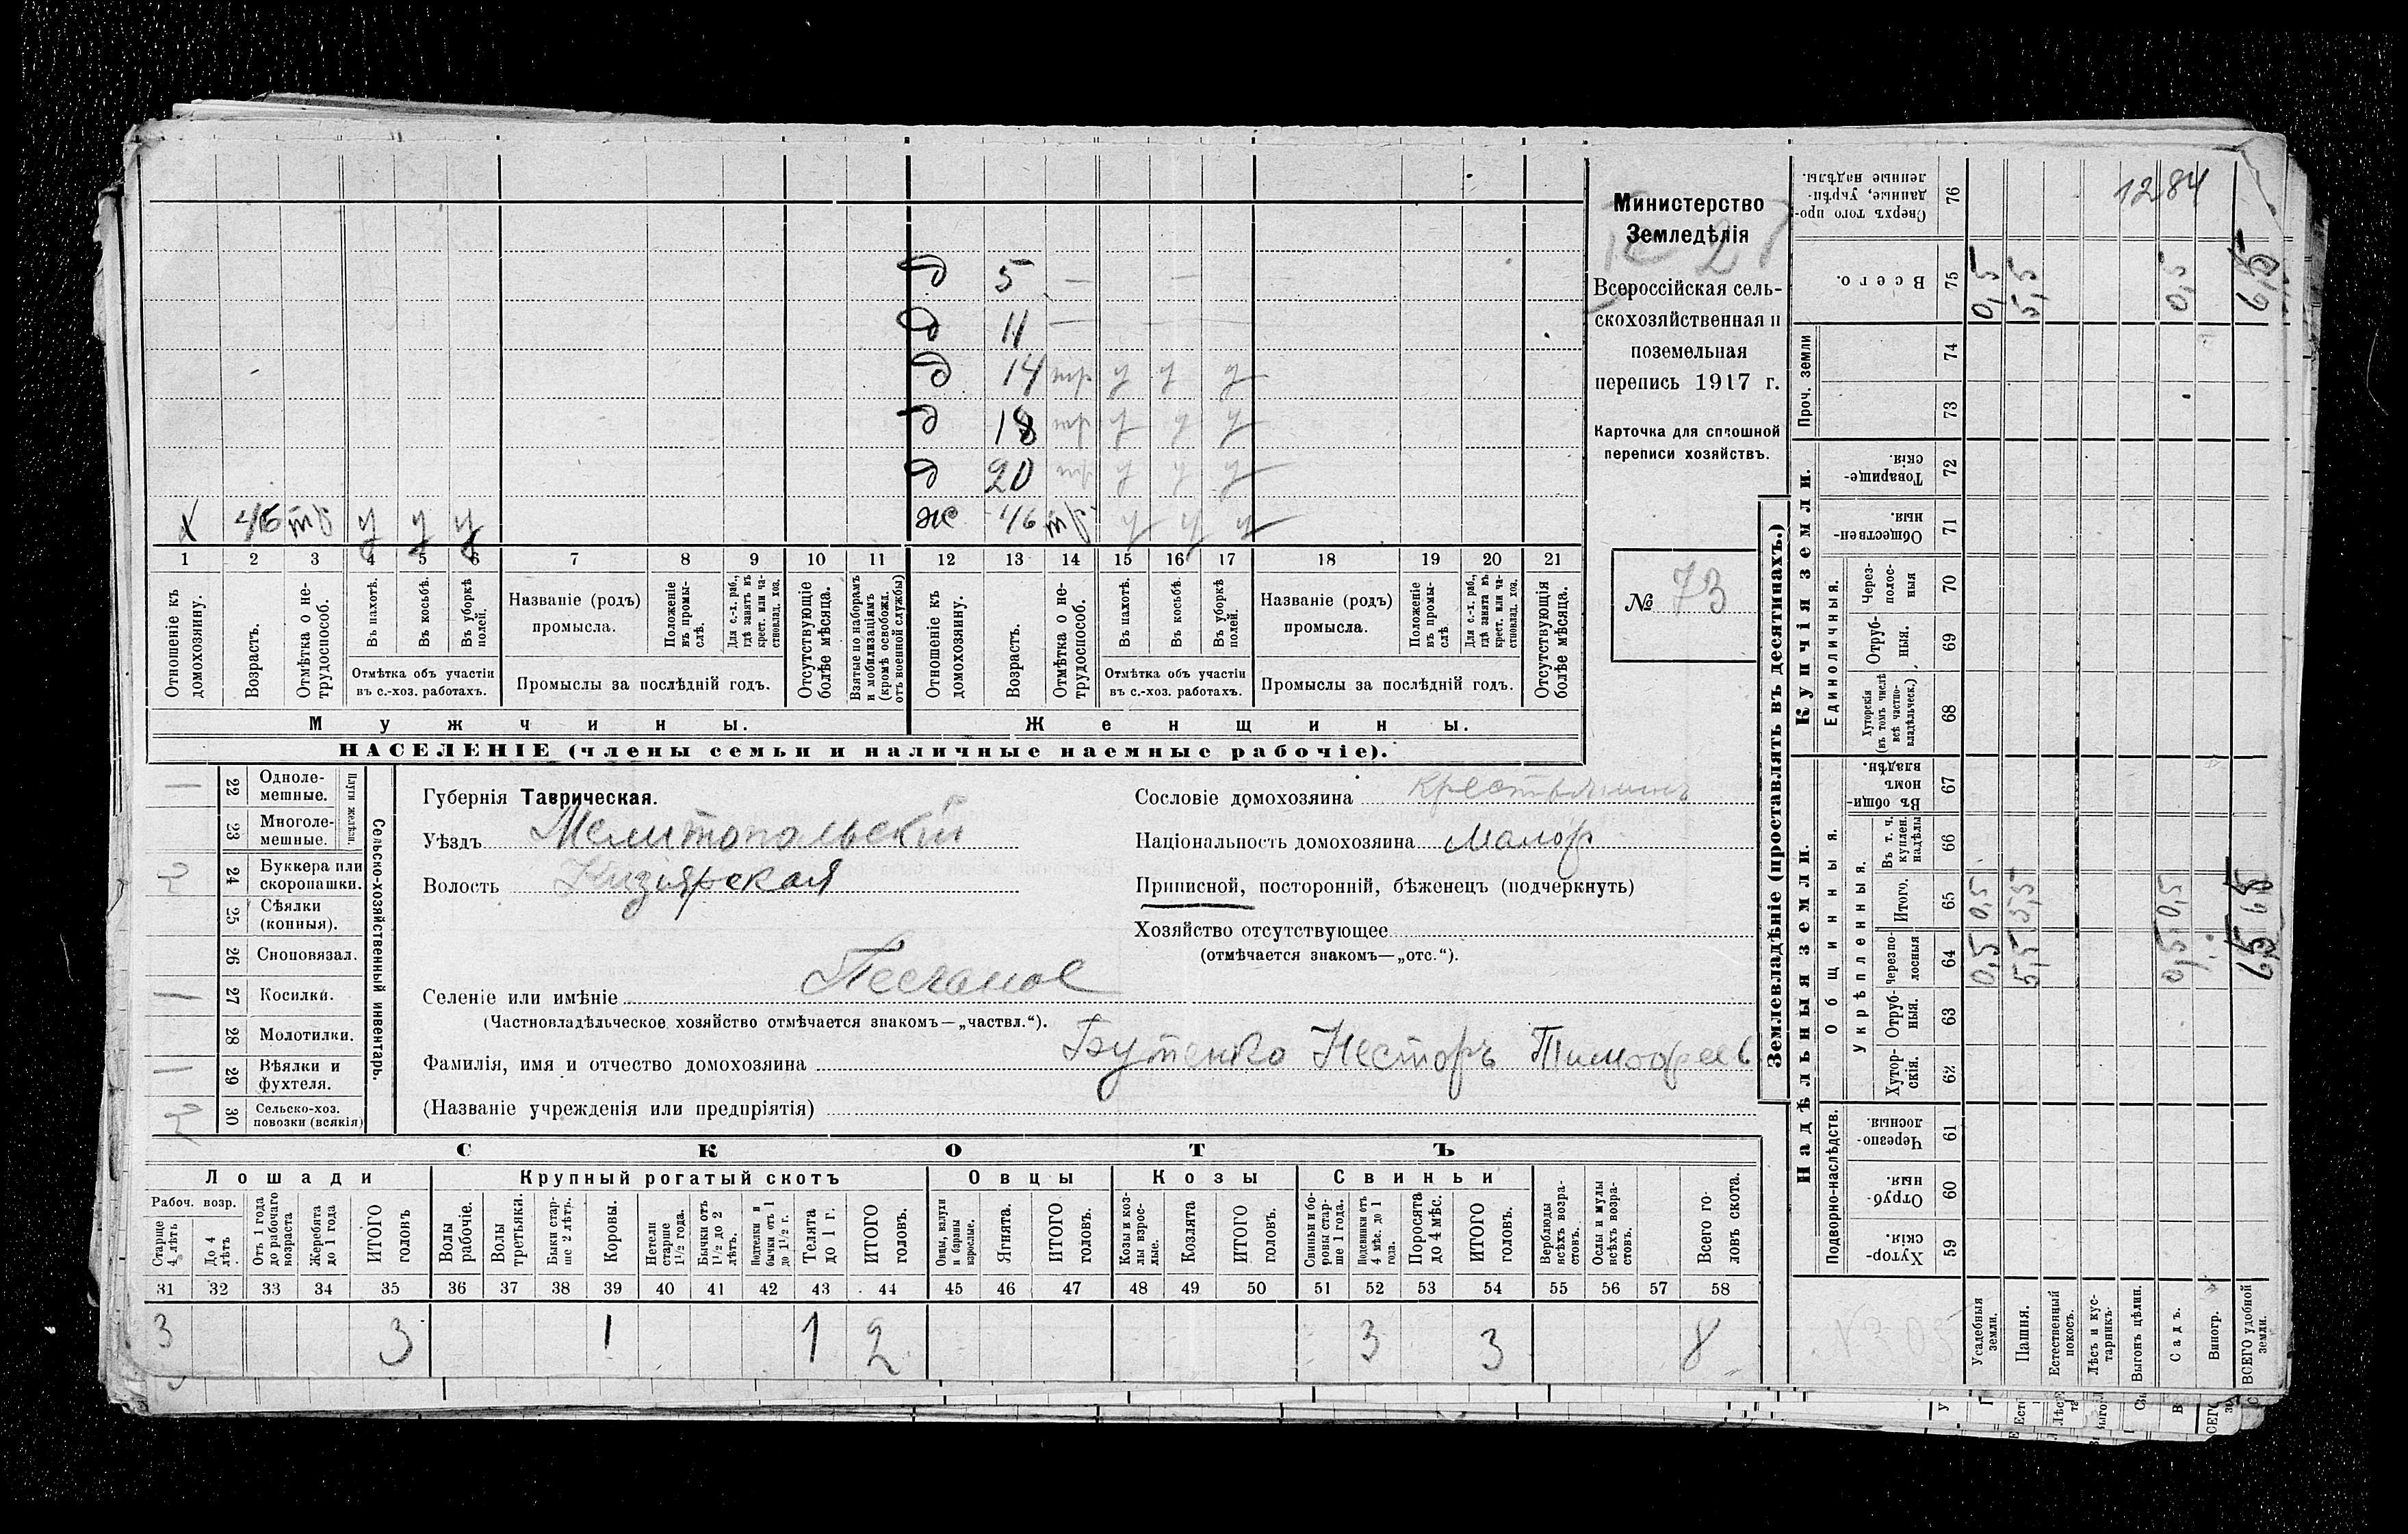 Министерство
Земледѣлія
Всероссійская сель-
скохозяйственная и
поземельная
перепись 1917 г.
Карточка для сплошной
переписи хозяйствъ.
№ 73
1284
д 5 — —
д 11 — — —
д 14 тр у у у
д 18 тр у у у
д 20 тр у у у
Х 46 тр у у у
ж 46 тр у у у
1 2 3 4 5 6 7 8 9 10 11 12 13 14 15 16 17 18 19 20 21
Отношеніе къ домохозяину.
Возрастъ.
Отмѣтка о не-трудоспособ.
Въ пахотѣ.
Въ косьбѣ.
Въ уборкѣ полей.
Отмѣтка объ участіи
въ с.-хоз. работахъ.
Названіе (родъ)
промысла.
Положеніе въ промы-слѣ.
Для с.-х. раб., гдѣ занятъ въ крест. или ча-стновлад. хоз.
Промыслы за послѣдній годъ.
Отсутствующіе болѣе мѣсяца.
Взятые по наборамъ и мобилизаціямъ (кромѣ освобожд. отъ военной службы)
Отношеніе къ домохозяину.
Возрастъ.
Отмѣтка о не-трудоспособ.
Въ пахотѣ.
Въ косьбѣ.
Въ уборкѣ полей.
Отмѣтка объ участіи
въ с.-хоз. работахъ.
Названіе (родъ)
промысла.
Положеніе въ промы-слѣ
Для с.-х. раб., гдѣ занята въ крест. или ча-стновлад. хоз.
Промыслы за послѣдній годъ.
Отсутствующія болѣе мѣсяца.
Мужчины.
Женщины.
НАСЕЛЕНІЕ (члены семьи и наличные наемные рабочіе).
Сельско-хозяйственный инвентарь.
Плуги желѣзн.
1 22 Одноле-мешные.
23 Многоле-мешные.
2 24 Буккера или скоропашки.
25 Сѣялки (конныя).
26 Сноповязал.
1 27 Косилки.
28 Молотилки.
1 29 Вѣялки и фухтеля.
2 30 Сельско-хоз. повозки (всякія)
Губернія Таврическая.
Уѣздъ Мелитопольскій
Волость Кизіярская
Селеніе или имѣніе Песчаное
(Частновладѣльческое хозяйство отмѣчается знакомъ—„частвл.“).
Фамилія, имя и отчество домохозяина Бутенко Несторъ Тимофеев
(Названіе учрежденія или предпріятія)
Сословіе домохозяина крестьянинъ
Національность домохозяина Малор
Приписной, посторонній, бѣженецъ (подчеркнуть)
Хозяйство отсутствующее
(отмѣчается знакомъ—„отс.“).
СКОТЪ
Лошади
Крупный рогатый скотъ
Овцы
Козы
Свиньи
Рабоч. возр.
Старше 4 лѣтъ
До 4 лѣтъ
Отъ 1 года до рабочаго возраста
Жеребята до 1 года
ИТОГО головъ
Волы рабочіе.
Волы третьяки.
Быки стар-ше 2 лѣтъ.
Коровы.
Нетели старше 1½ года.
Бычки отъ 1½ до 2 лѣтъ.
Подтелки и бычки отъ 1 до 1½ г.
Телята до 1 г.
ИТОГО головъ.
Овцы, валухи и бараны взрослые.
Ягнята.
ИТОГО головъ.
Козы и коз-лы взрос-лые.
Козлята
ИТОГО головъ.
Свиньи и бо-ровы стар-ше 1 года.
Подсвинки отъ 4 мѣс. до 1 года.
Поросята до 4 мѣс.
ИТОГО головъ.
Верблюды всѣхъ возра-стовъ.
Ослы и мулы всѣхъ возра-стовъ.
Всего го-ловъ скота.
31 32 33 34 35 36 37 38 39 40 41 42 43 44 45 46 47 48 49 50 51 52 53 54 55 56 57 58
3 3 1 1 2 3 3 8
Землевладѣніе (проставлять въ десятинахъ.)
Надѣльныя земли.
Купчія земли.
Проч. земли
Подворно-наслѣдств.
Общинныя.
Укрѣпленныя.
Единоличныя.
Сверхъ того про-данные, укрѣп-ленные надѣлы. 76
Всего. 75
74
73
Товарище-скія. 72
Обществен-ныя. 71
Через-полос-ныя 70
Отруб-ныя. 69
Хуторскія (въ томъ числѣ всѣ частно-владѣльческ.) 68
Въ общи-номъ владѣн. 67
Въ т. ч. куплен. надѣлы 66
Итого. 65
Черезпо-лосныя 64
Отруб-ныя. 63
Хутор-скія. 62
Черезпо-лосныя. 61
Отруб-ныя. 60
Хутор-скія. 59
0,5 5,5 0,5 6,5
0,5 5,5 0,5 6,5
0,5 5,5 0,5 6,5
Усадебныя земли.
Пашня.
Естественный покосъ.
Лѣсъ и кус-тарникъ.
Выгонъ цѣлин.
Садъ.
Виногр.
ВСЕГО удобной земли.